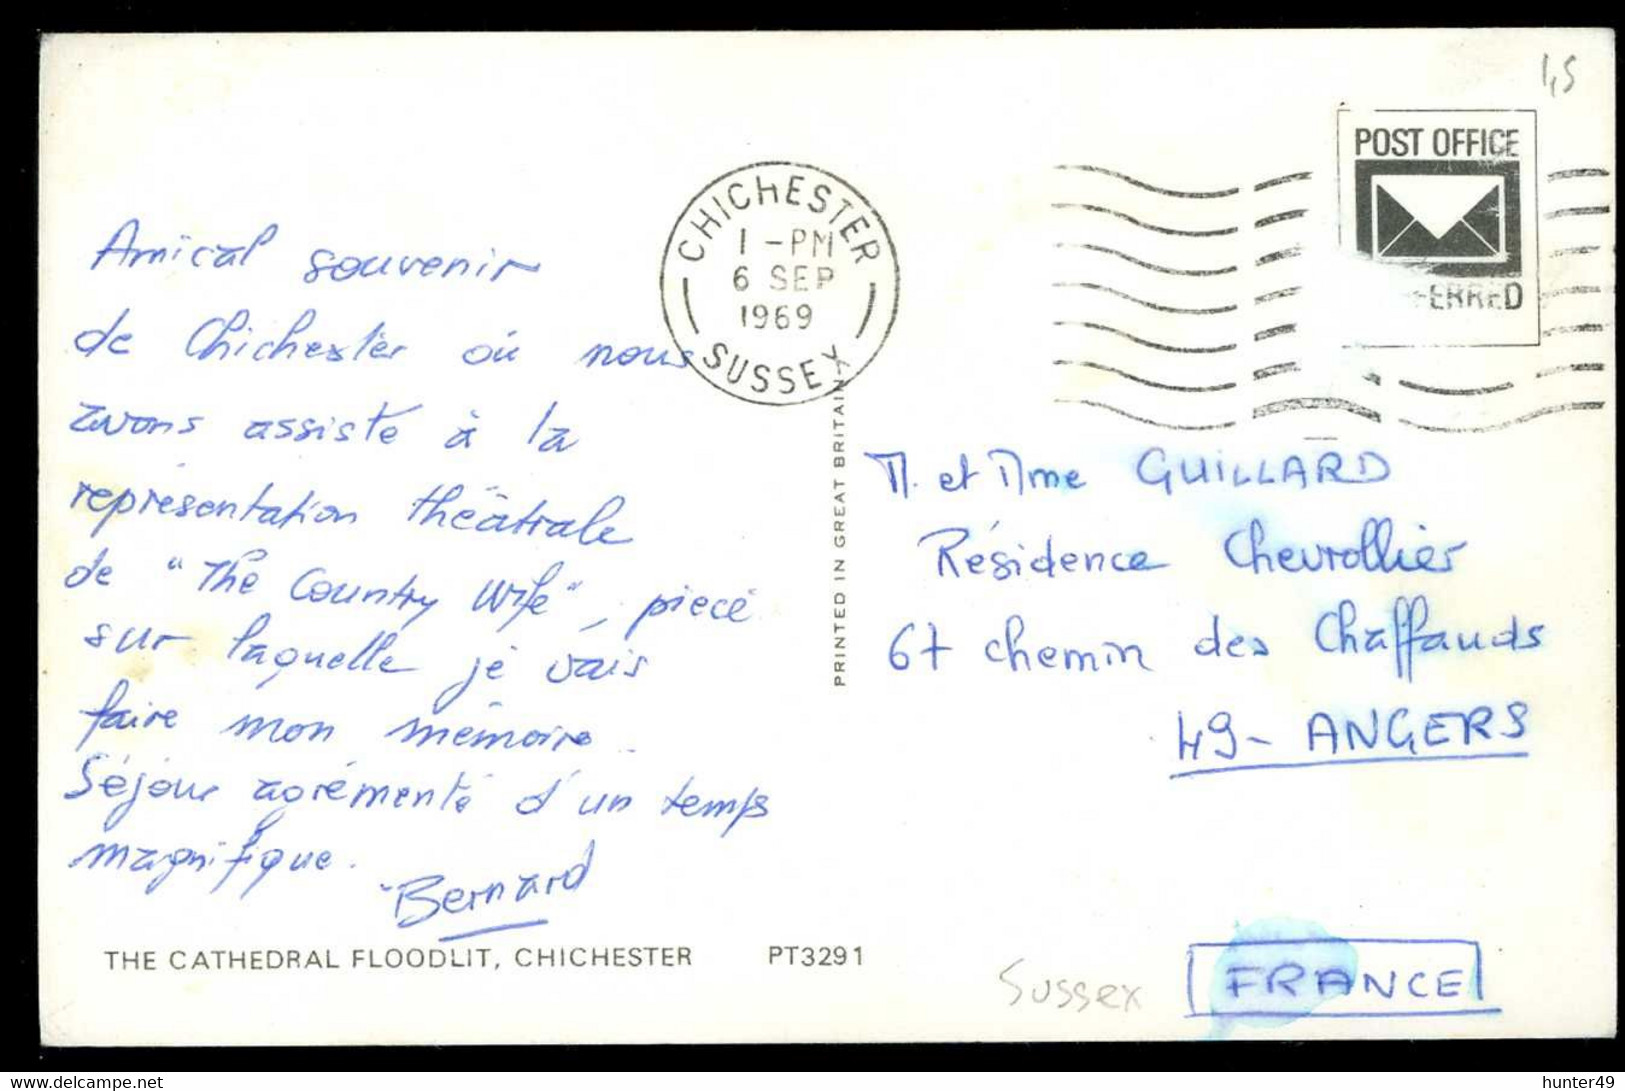 1,5
POST OFFICE
FERRED
CHICHESTER
1 - PM
6 SEP
1969
SUSSEX
Amical souvenir
de Chichester où nous
avons assisté à la
représentation théâtrale
de "The Country Wife", pièce
sur laquelle je vais
faire mon mémoire.
Séjour agrémenté d'un temps
magnifique.
Bernard
THE CATHEDRAL FLOODLIT, CHICHESTER PT3291
PRINTED IN GREAT BRITAIN
M. et Mme GUILLARD
Résidence Chevrollier
67 chemin des Chaffauds
49 - ANGERS
FRANCE
Sussex
delcampe.net
hunter49